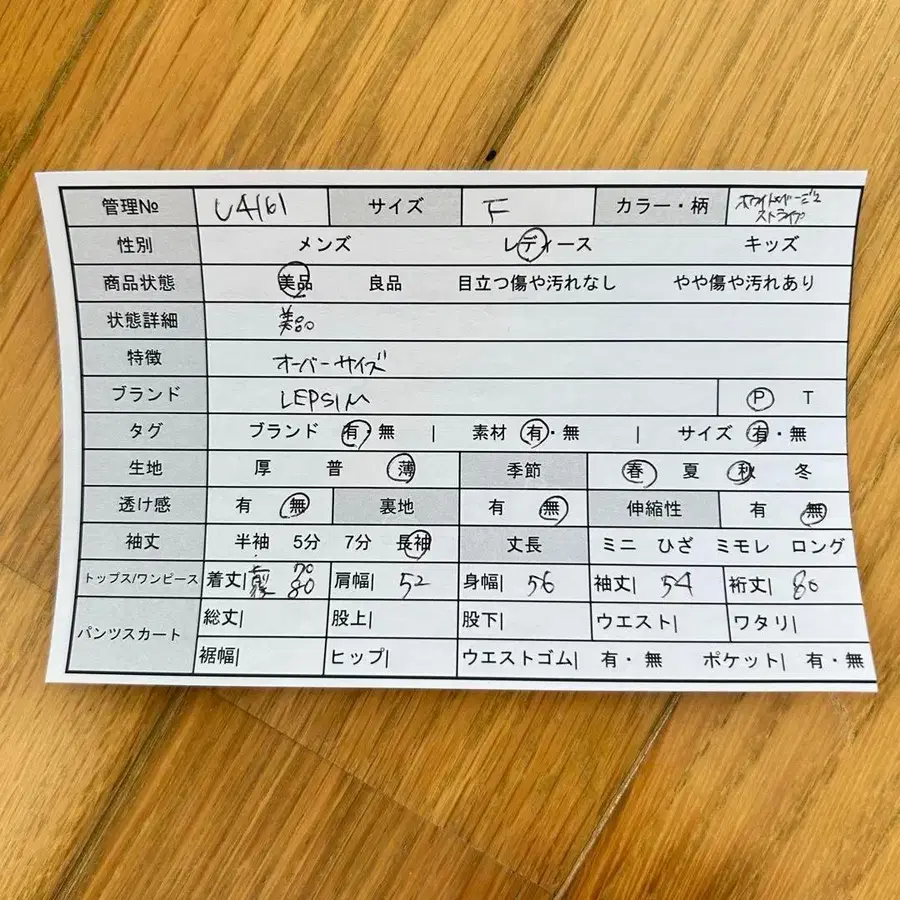 管理№ U4161 サイズ F カラー・柄 ホワイト×ベージュ ストライプ
性別 メンズ レディース キッズ
商品状態 美品 良品 目立つ傷や汚れなし やや傷や汚れあり
状態詳細 美品
特徴 オーバーサイズ
ブランド LEPSIM P T
タグ ブランド 有・無 | 素材 有・無 | サイズ 有・無
生地 厚 普 薄 季節 春 夏 秋 冬
透け感 有 無 裏地 有 無 伸縮性 有 無
袖丈 半袖 5分 7分 長袖 丈長 ミニ ひざ ミモレ ロング
トップス/ワンピース 着丈| 前 70 後 80 肩幅| 52 身幅| 56 袖丈| 54 裄丈| 80
パンツスカート 総丈| 股上| 股下| ウエスト| ワタリ|
裾幅| ヒップ| ウエストゴム| 有・無 ポケット| 有・無